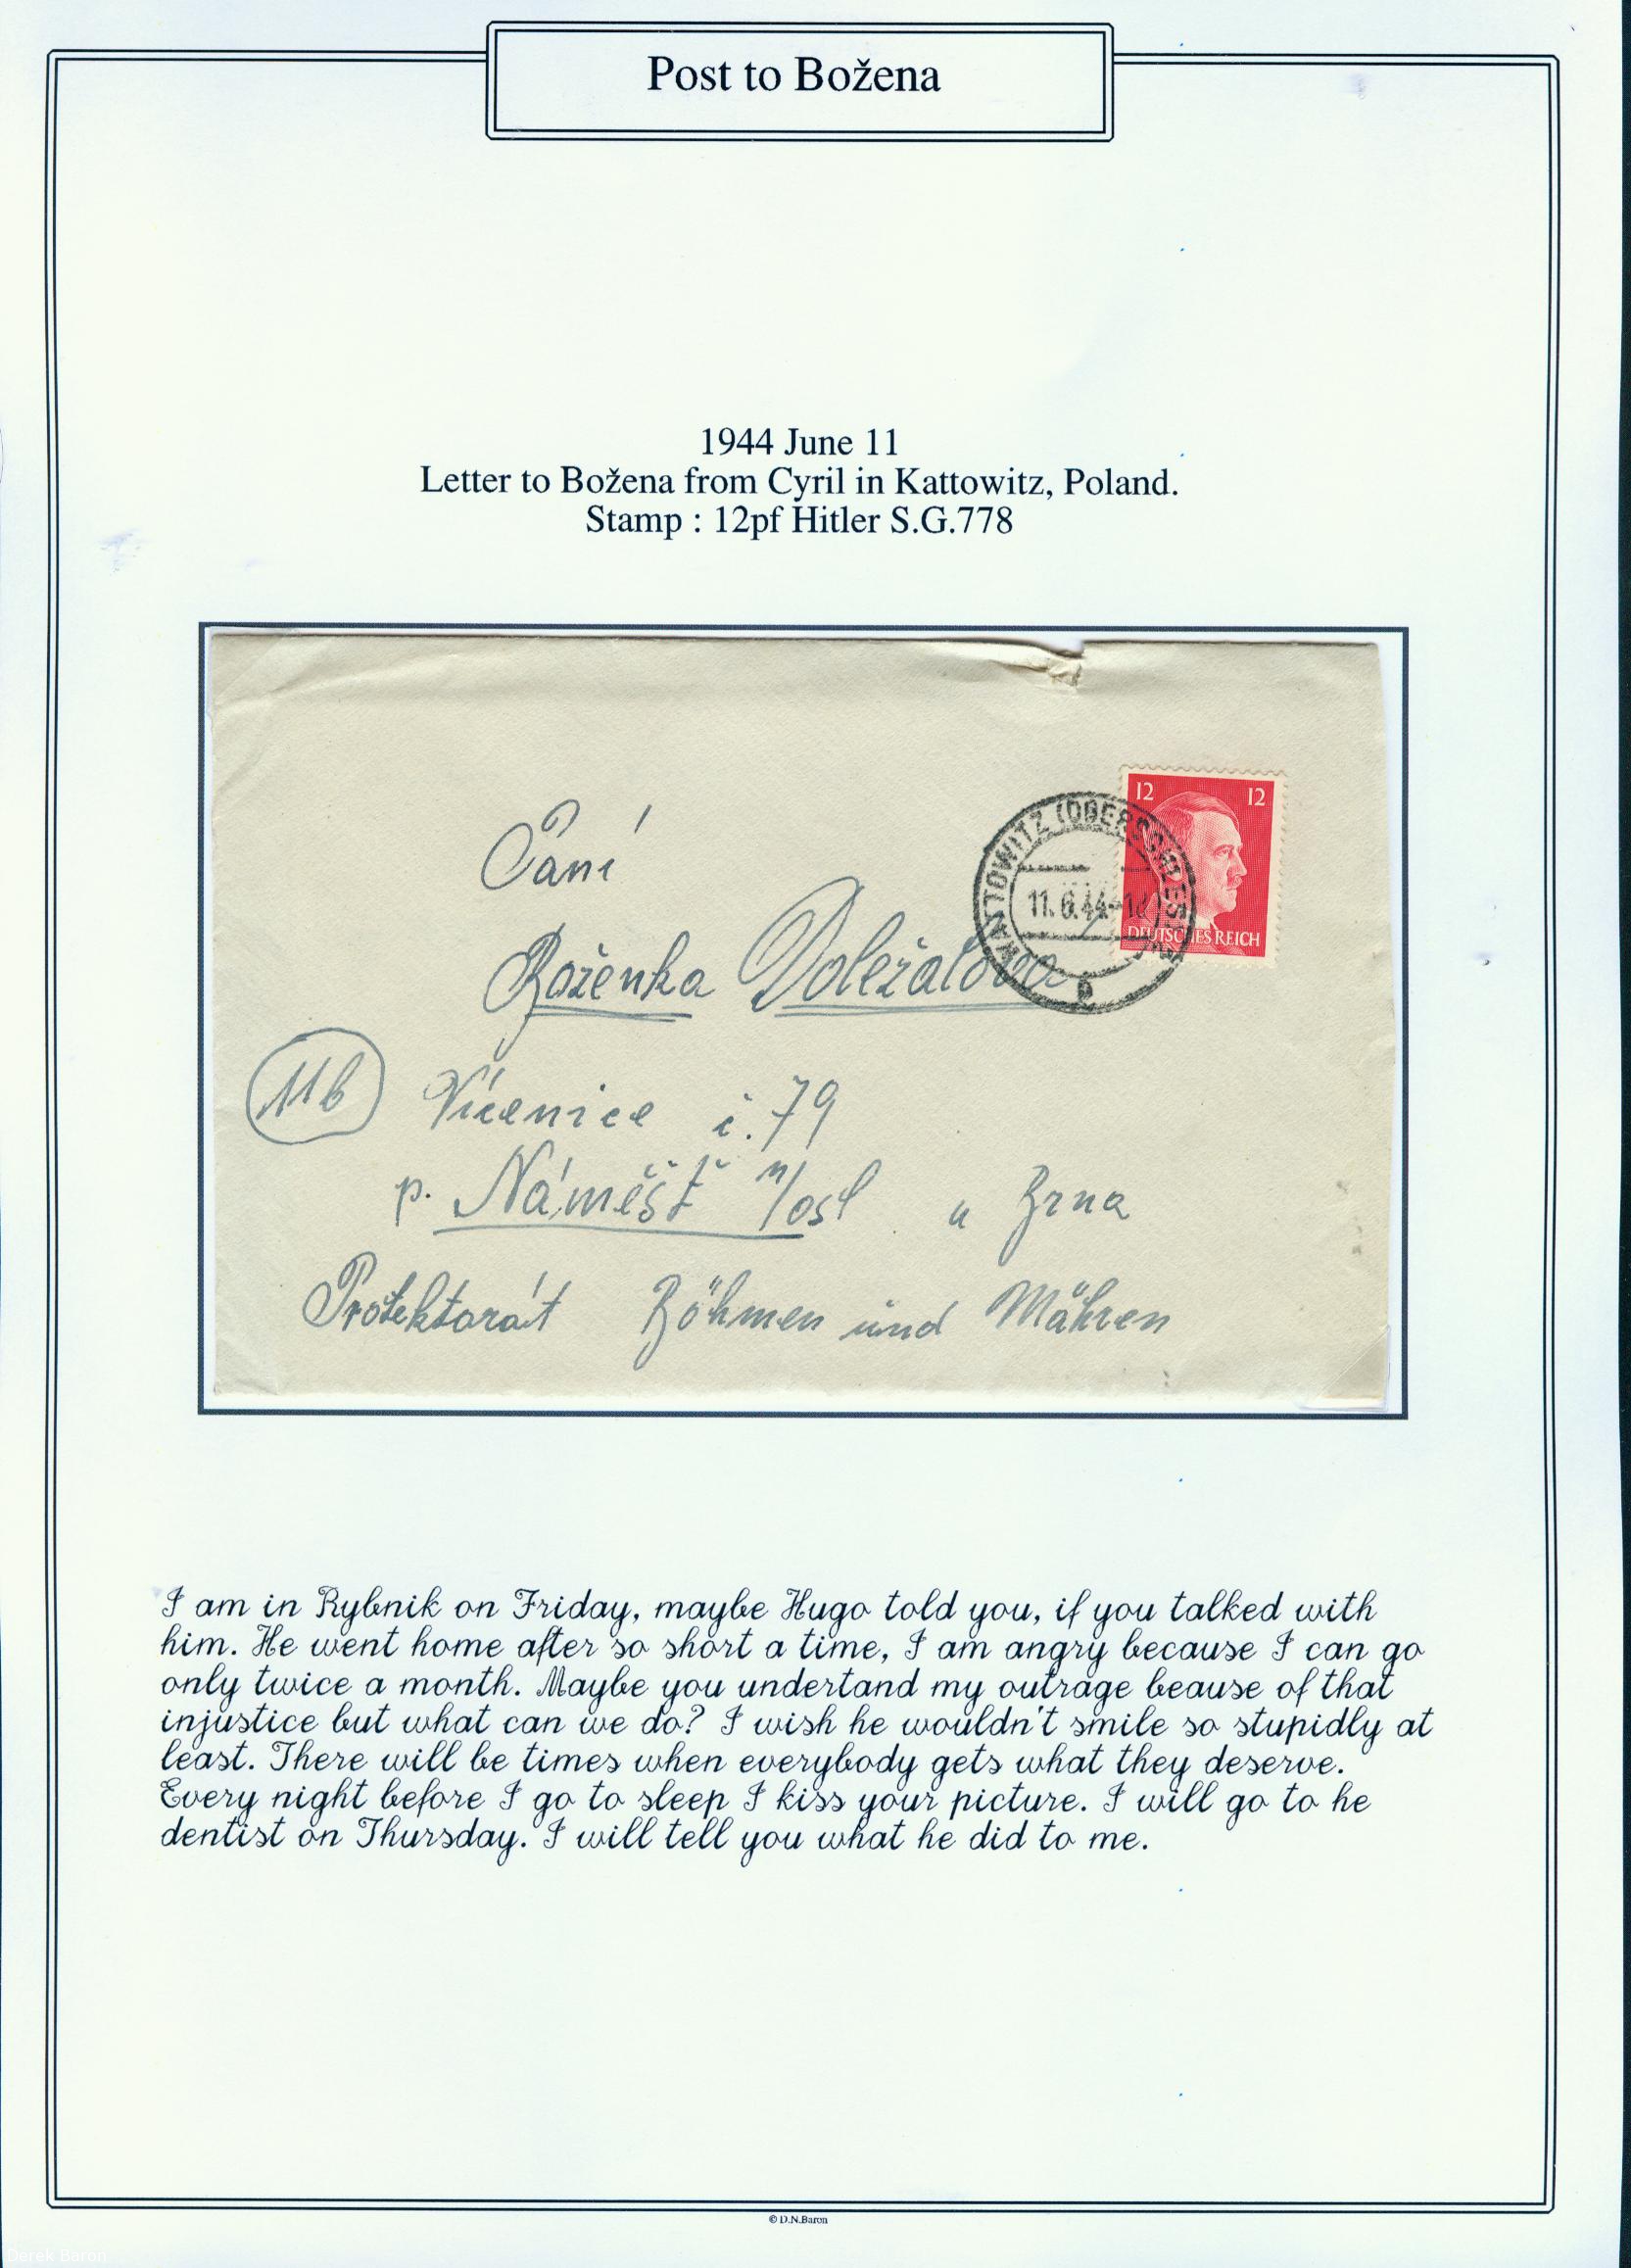 Post to Božena
1944 June 11
Letter to Božena from Cyril in Kattowitz, Poland.
Stamp : 12pf Hitler S.G.778
12 12
DEUTSCHES REICH
KATTOWITZ (OBERSCHLES)
11.6.44-18
Paní
Boženka Doležalova
11b Vícenice č. 79
p. Náměšť n/osl u Brna
Protektorát Böhmen und Mähren
I am in Rybnik on Friday, maybe Hugo told you, if you talked with
him. He went home after so short a time, I am angry because I can go
only twice a month. Maybe you undertand my outrage beause of that
injustice but what can we do? I wish he wouldn't smile so stupidly at
least. There will be times when everybody gets what they deserve.
Every night before I go to sleep I kiss your picture. I will go to he
dentist on Thursday. I will tell you what he did to me.
© D.N.Baron
Derek Baron